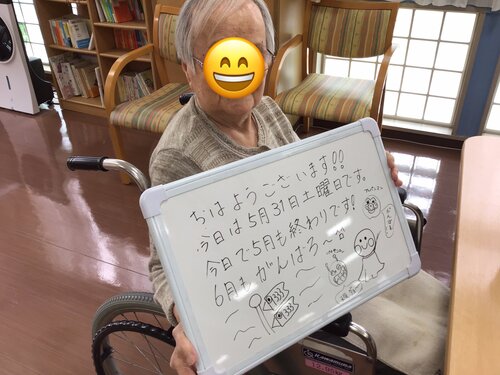 おはようございます!!
今日は5月31日土曜日です。
今日で5月も終わりです!
6月もがんばろ〜
Kawamura